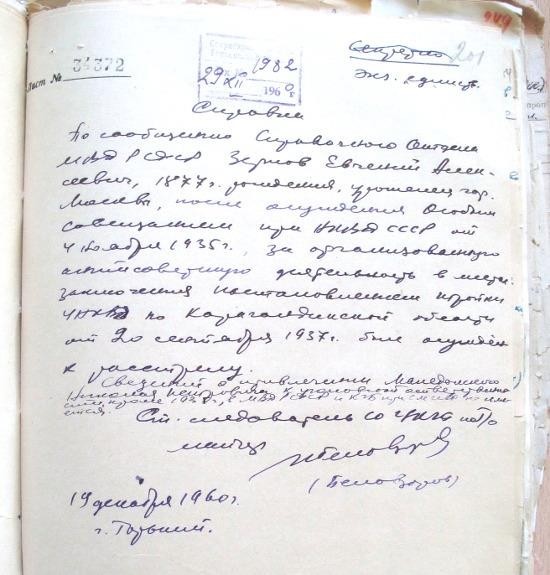 249
Секретно 201
экз. единств.
Лист № 34372
1982
29 XII 1960 г.
Справка
По сообщению Справочного Отдела
МВД РСФСР Зернов Евгений Алек-
сеевич, 1877 г. рождения, уроженец гор.
Москвы, после осуждения Особым
совещанием при НКВД СССР от
4 ноября 1935 г., за организованную
антисоветскую деятельность в местах
заключения постановлением тройки
УНКВД по Карагандинской области
от 20 сентября 1937 г. был осужден
к расстрелу.
Сведений о привлечении Македонского
Николая Петровича к уголовной ответственно-
сти после 1938 г. в МВД РСФСР и КГБ при СМ
Ст. следователь СО УКГБ по ГО
майор
(Белозеров)
19 декабря 1960 г.
г. Горький.